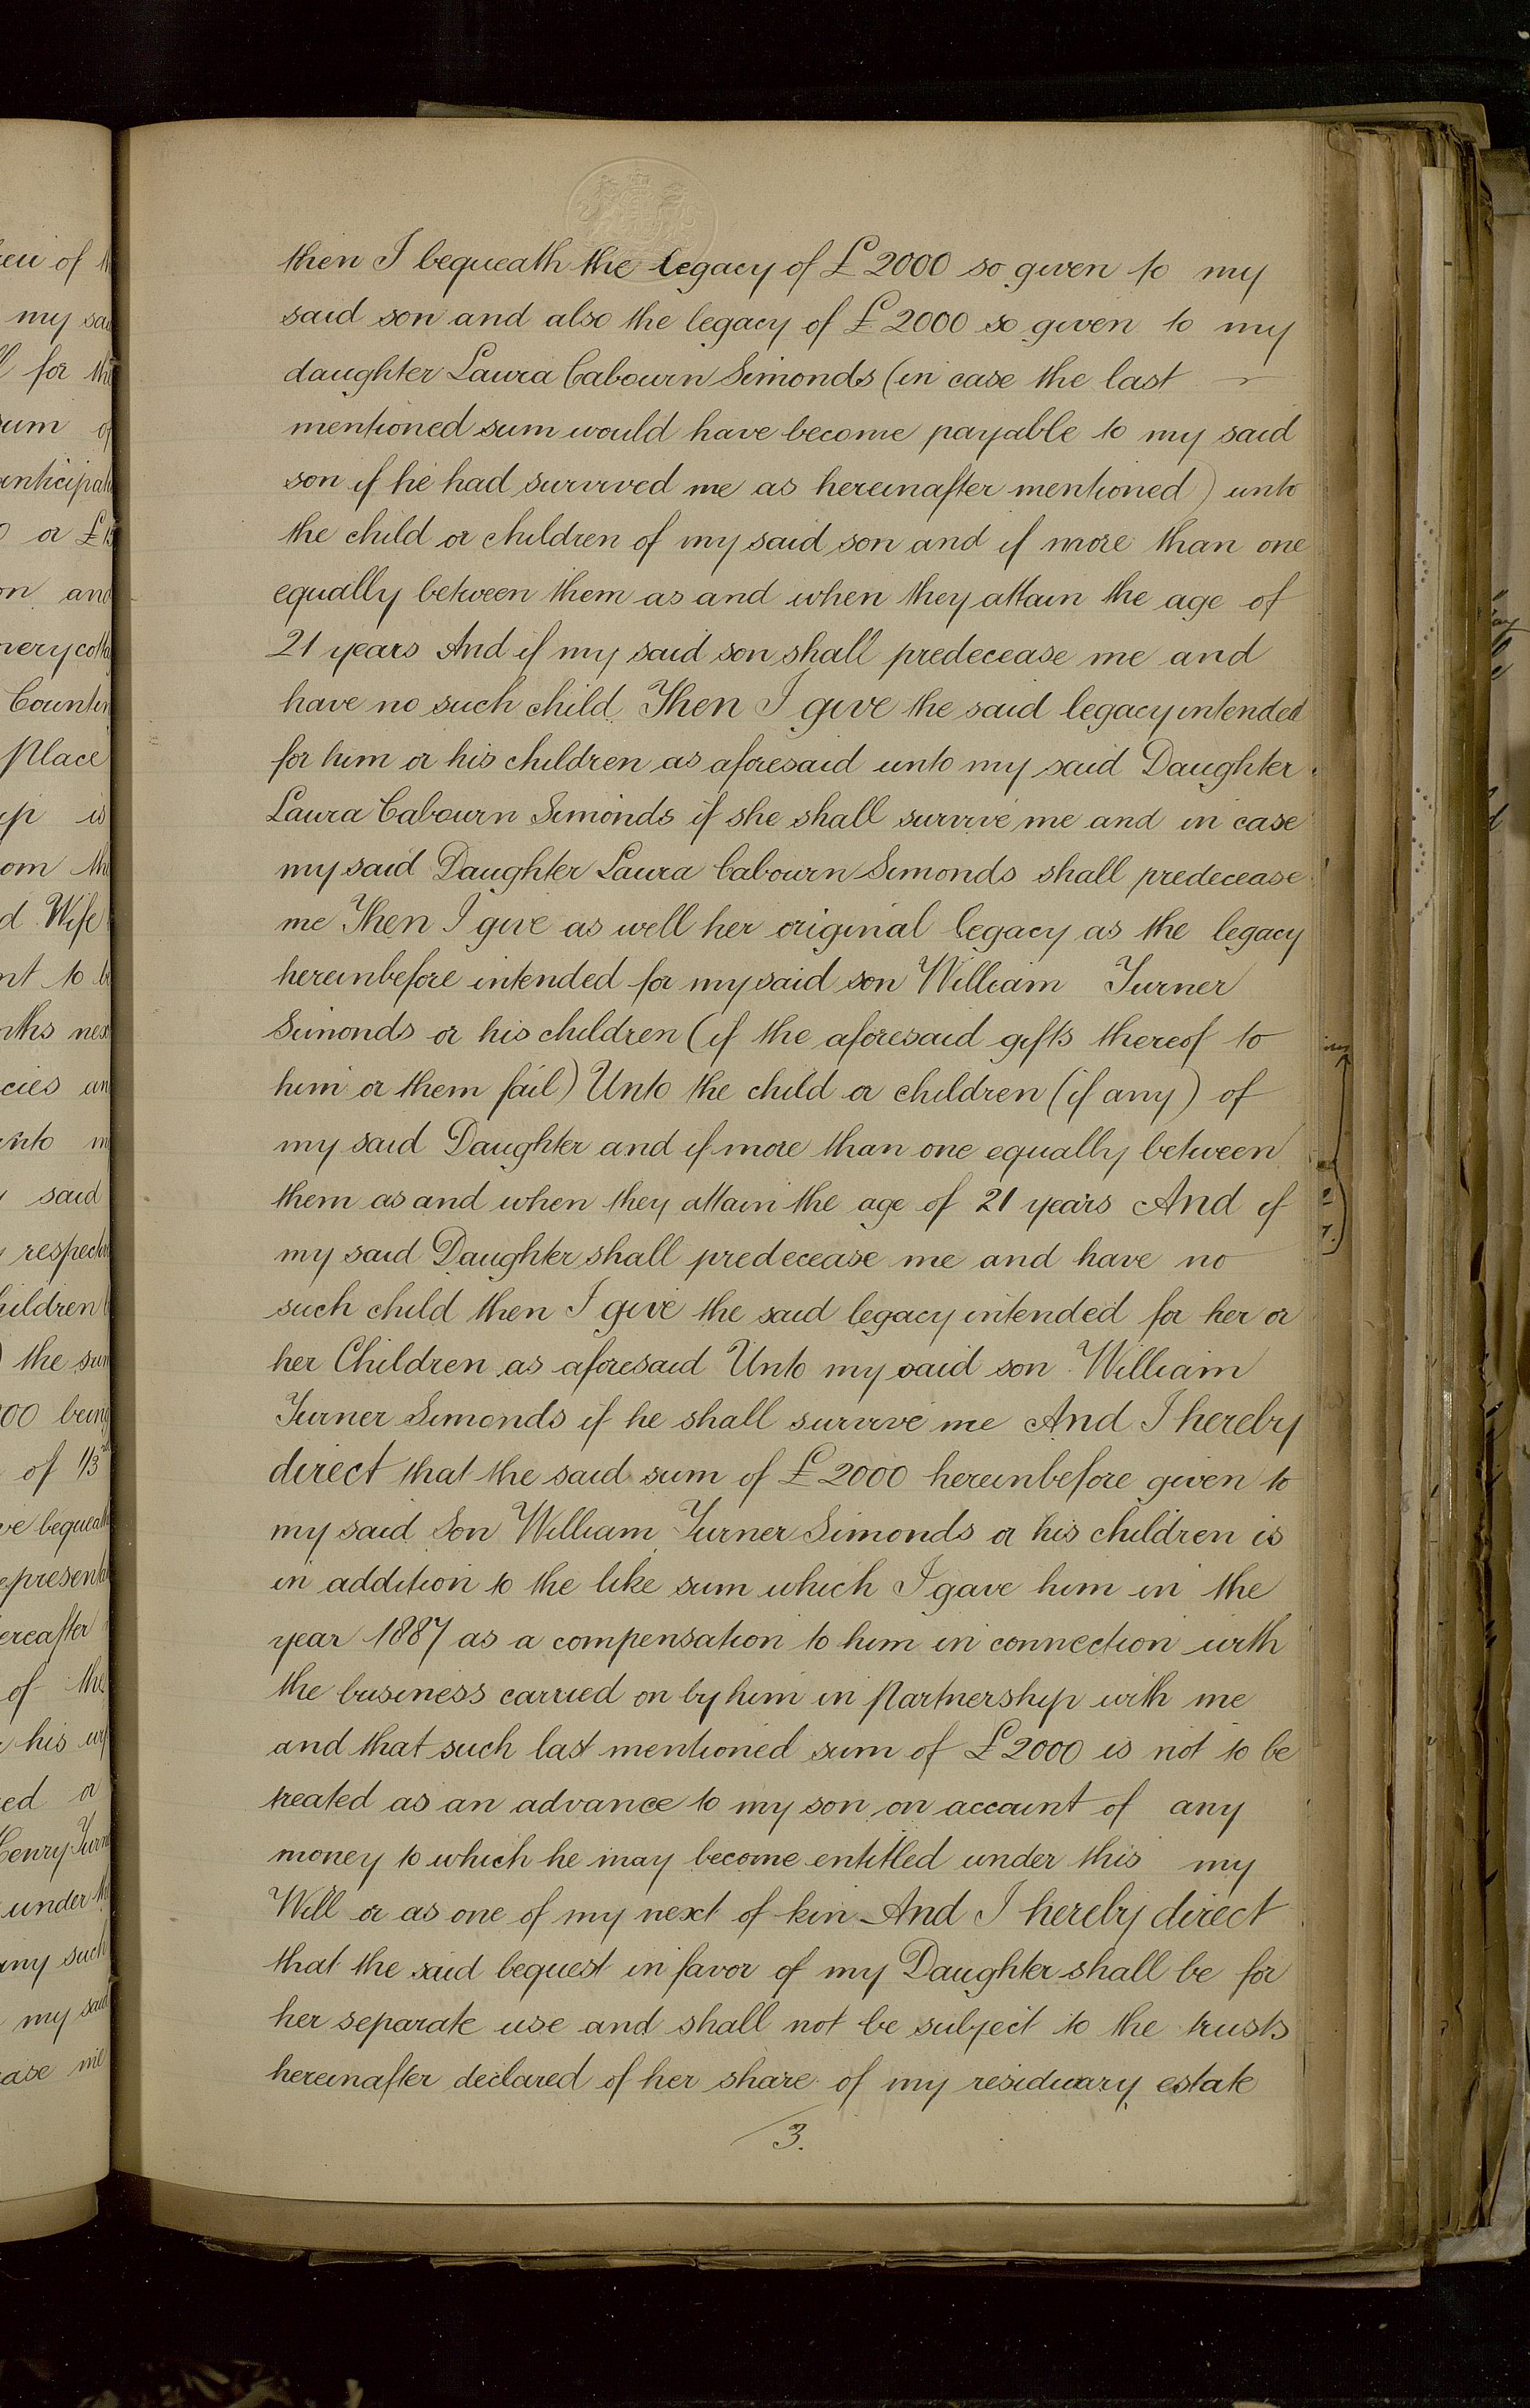 then I bequeath the legacy of £2000 so given to my
said son and also the legacy of £2000 so given to my
daughter Laura Cabourn Simonds (in case the last
mentioned sum would have become payable to my said
son if he had survived me as hereinafter mentioned) unto
the child or children of my said son and if more than one
equally between them as and when they attain the age of
21 years And if my said son shall predecease me and
have no such child Then I give the said legacy intended
for him or his children as aforesaid unto my said Daughter
Laura Cabourn Simonds if she shall survive me and in case
my said Daughter Laura Cabourn Simonds shall predecease
me Then I give as well her original legacy as the legacy
hereinbefore intended for my said son William Turner
Simonds or his children (if the aforesaid gifts thereof to
him or them fail) Unto the child or children (if any) of
my said Daughter and if more than one equally between
them as and when they attain the age of 21 years And if
my said Daughter shall predecease me and have no
such child then I give the said legacy intended for her or
her Children as aforesaid Unto my said son William
Turner Simonds if he shall survive me And I hereby
direct that the said sum of £2000 hereinbefore given to
my said Son William Turner Simonds or his children is
in addition to the like sum which I gave him in the
year 1887 as a compensation to him in connection with
the business carried on by him in partnership with me
and that such last mentioned sum of £2000 is not to be
treated as an advance to my son on account of any
money to which he may become entitled under this my
Will or as one of my next of kin And I hereby direct
that the said bequest in favor of my Daughter shall be for
her separate use and shall not be subject to the trusts
hereinafter declared of her share of my residuary estate
3.